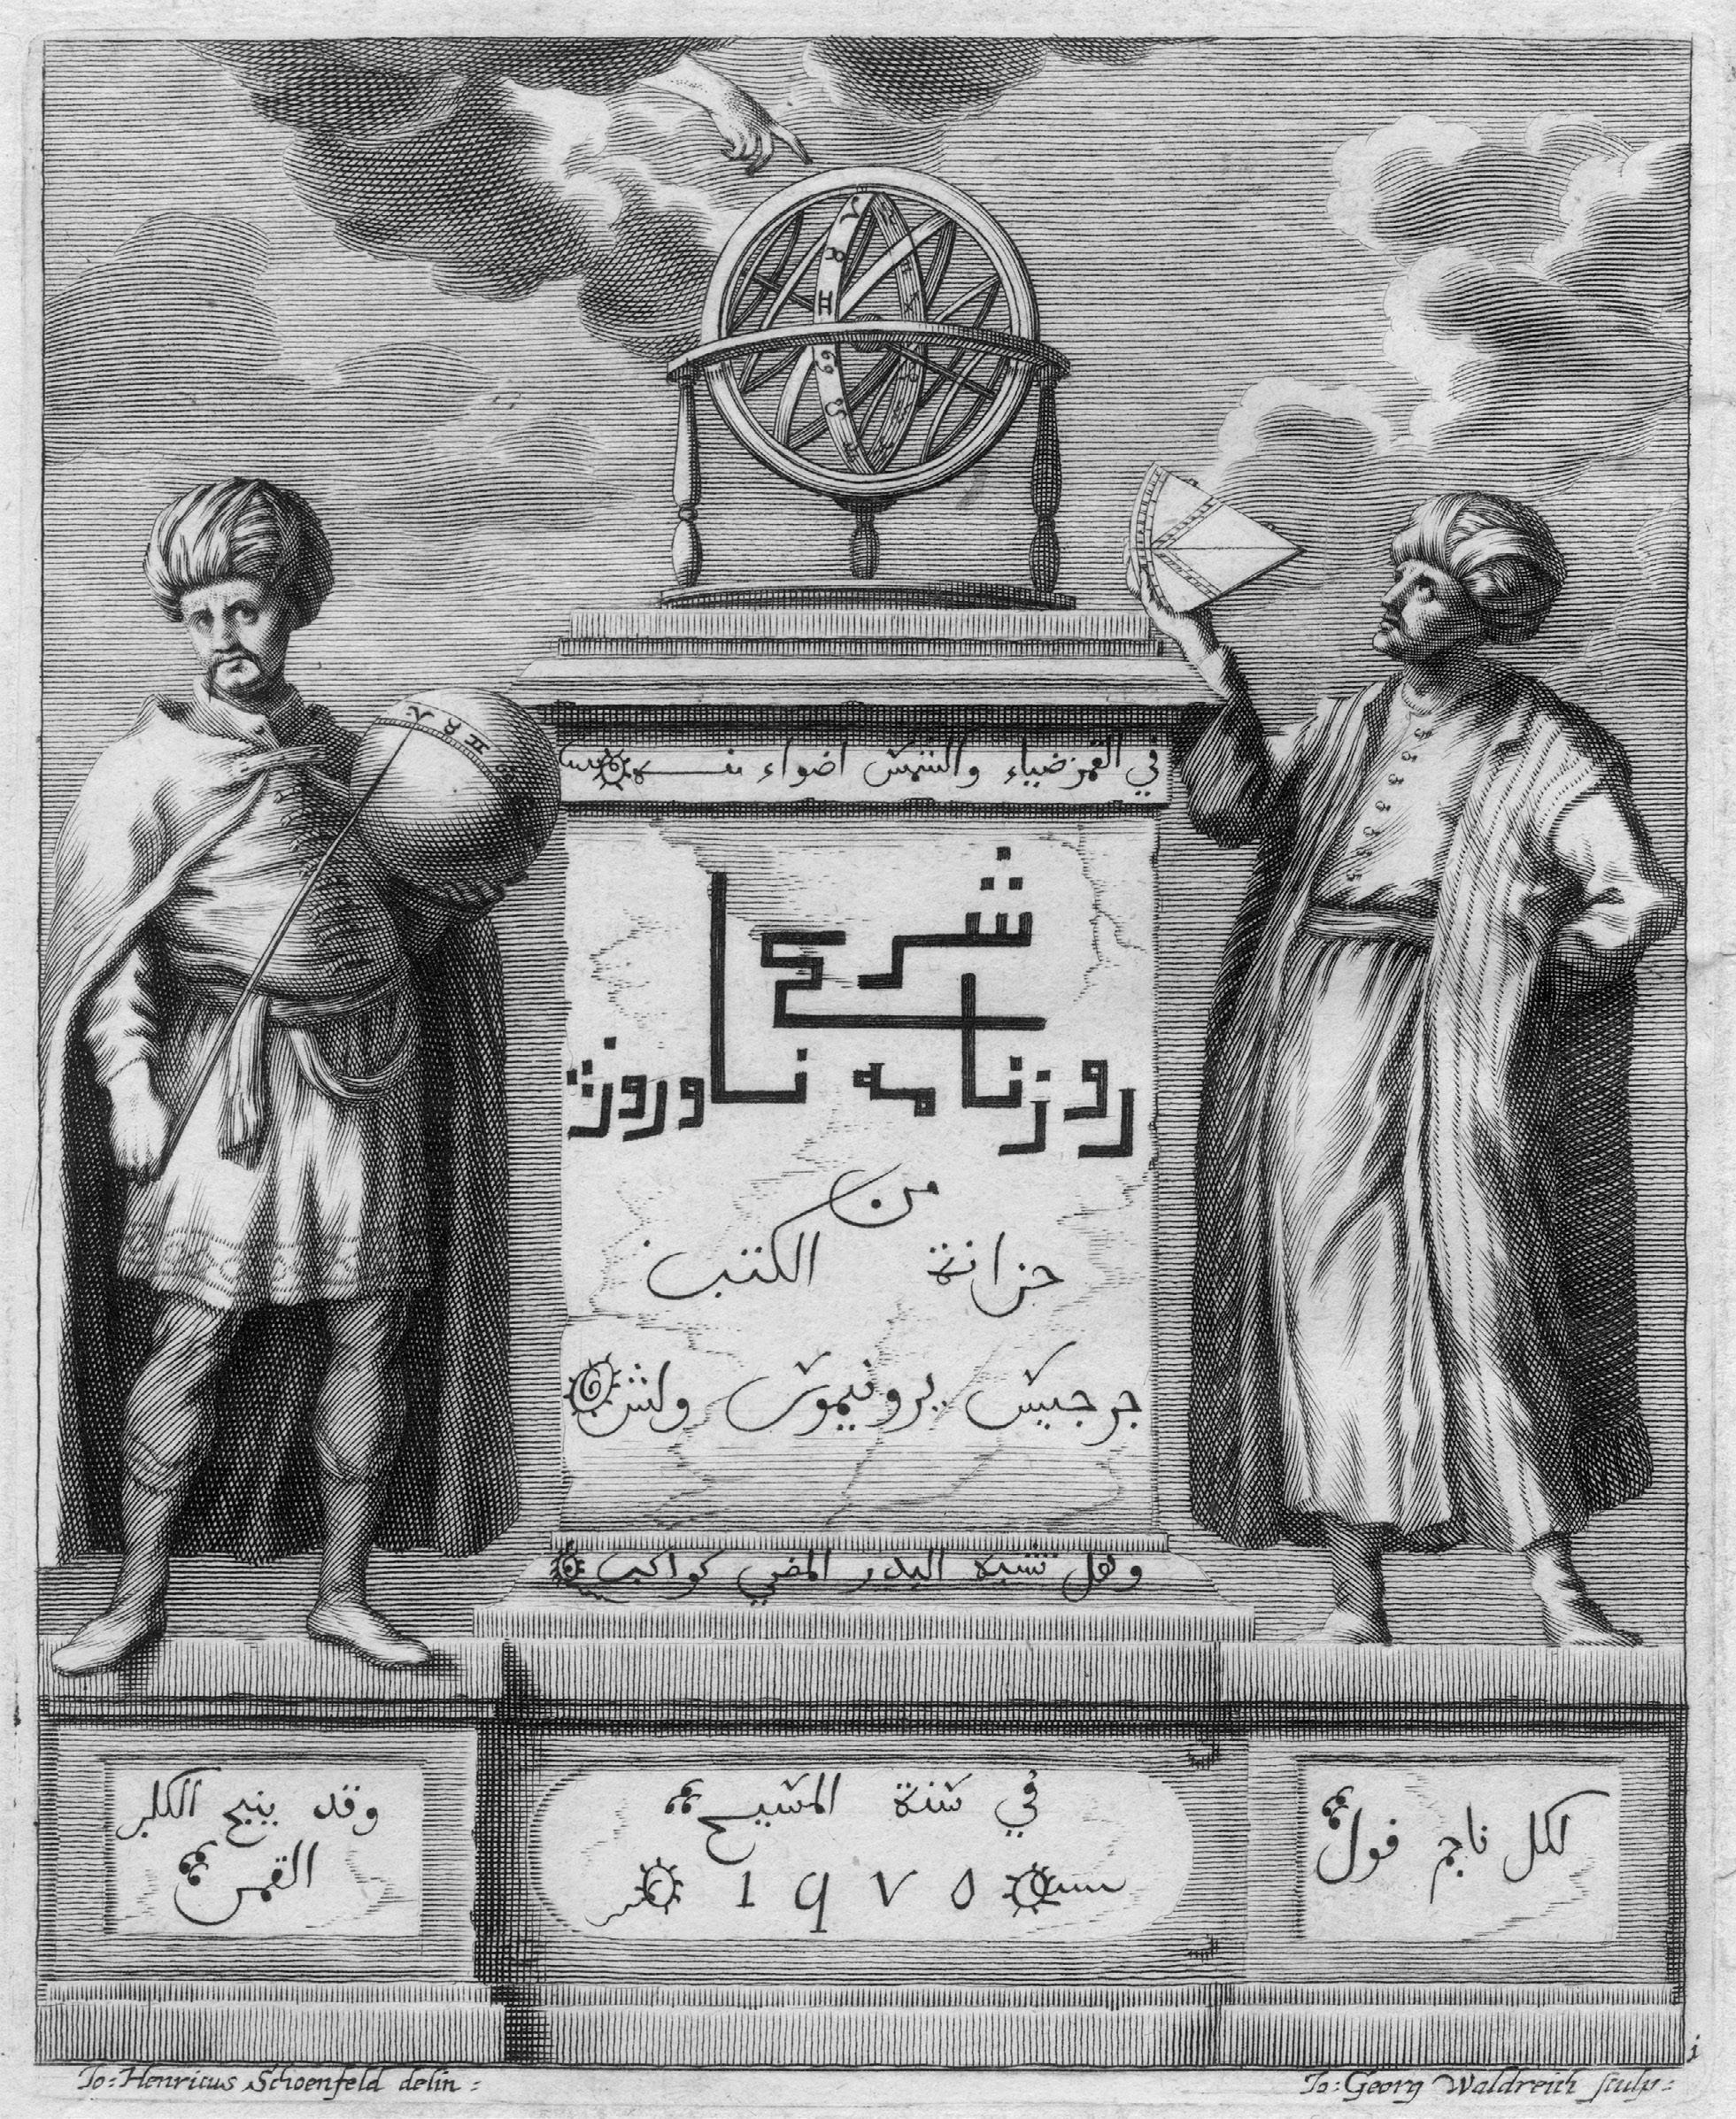 في القمر ضياء والشمس اضواء منه
شرح
روزنامه ناوروز
من
خزانة الكتب
جرجيس يرونيموس ولش
وهل تشبه البدر المضي كواكب
وقد ينبح الكلب
القمر
في سنة المسيح
١٩٧٥
لكل ناجم فول
Jo: Henricus Schoenfeld delin:
Jo: Georg Waldreich sculp: